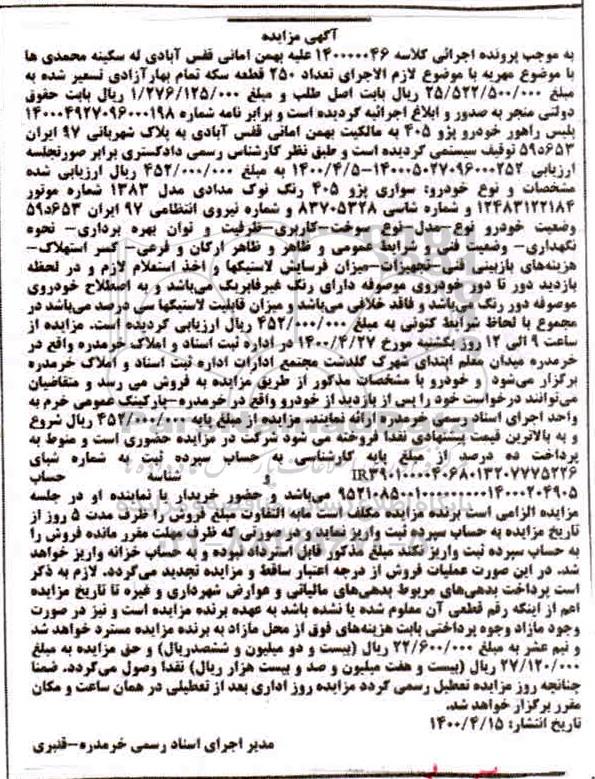 آگهی مزایده
به موجب پرونده اجرائی کلاسه ۱۴۰۰۰۰۰۴۶ علیه بهمن امانی قفس آبادی له سکینه محمدی ها
با موضوع مهریه با موضوع لازم الاجرای تعداد ۲۵۰ قطعه سکه تمام بهارآزادی تسعیر شده به
مبلغ ۲۵/۵۲۲/۵۰۰/۰۰۰ ریال بابت اصل طلب و مبلغ ۱/۲۷۶/۱۲۵/۰۰۰ ریال بابت حقوق
دولتی منجر به صدور و ابلاغ اجرائیه گردیده است و برابر نامه شماره ۱۴۰۰۰۴۹۲۷۰۹۶۰۰۰۱۹۸
پلیس راهور خودرو پژو ۴۰۵ به مالکیت بهمن امانی قفس آبادی به پلاک شهربانی ۹۷ ایران
۶۵۳د۵۹ توقیف سیستمی گردیده است و طبق نظر کارشناس رسمی دادگستری برابر صورتجلسه
ارزیابی ۱۴۰۰۰۵۰۲۷۰۹۶۰۰۰۲۵۲-۱۴۰۰/۴/۵ به مبلغ ۴۵۲/۰۰۰/۰۰۰ ریال ارزیابی شده
مشخصات و نوع خودرو: سواری پژو ۴۰۵ رنگ نوک مدادی مدل ۱۳۸۳ شماره موتور
۱۲۴۸۳۱۲۲۱۸۴ و شماره شاسی ۸۳۷۰۵۳۲۸ و شماره نیروی انتظامی ۹۷ ایران ۶۵۳د۵۹
وضعیت خودرو نوع-مدل-نوع سوخت-کاربری-ظرفیت و توان بهره برداری- نحوه
نگهداری- وضعیت فنی و شرایط عمومی و ظاهر و ظاهر ارکان و فرعی- کسر استهلاک-
هزینه‌های بازبینی فنی-تجهیزات-میزان فرسایش لاستیکها و اخذ استعلام لازم و در لحظه
بازدید دور تا دور خودروی موصوفه دارای رنگ غیرفابریک می‌باشد و به اصطلاح خودروی
موصوفه دور رنگ می‌باشد و فاقد خلافی می‌باشد و میزان قابلیت لاستیکها سی درصد می‌باشد در
مجموع با لحاظ شرایط کنونی به مبلغ ۴۵۲/۰۰۰/۰۰۰ ریال ارزیابی گردیده است. مزایده از
ساعت ۹ الی ۱۲ روز یکشنبه مورخ ۱۴۰۰/۴/۲۷ در اداره ثبت اسناد و املاک خرمدره واقع در
خرمدره میدان معلم ابتدای شهرک گلدشت مجتمع ادارات اداره ثبت اسناد و املاک خرمدره
برگزار می‌شود و خودرو با مشخصات مذکور از طریق مزایده به فروش می رسد و متقاضیان
می‌توانند درخواست خود را پس از بازدید از خودرو واقع در خرمدره-پارکینگ عمومی خرم به
واحد اجرای اسناد رسمی خرمدره ارائه نمایند. مزایده از مبلغ پایه ۴۵۲/۰۰۰/۰۰۰ ریال شروع
و به بالاترین قیمت پیشنهادی نقدا فروخته می شود شرکت در مزایده حضوری است و منوط به
پرداخت ده درصد از مبلغ پایه کارشناسی به حساب سپرده ثبت به شماره شبای
IR۳۹۰۱۰۰۰۰۴۰۶۸۰۱۳۲۰۷۷۷۵۲۲۶ و شناسه حساب
۹۵۲۱۰۸۵۰۰۱۰۰۰۰۰۰۰۰۰۱۴۰۰۰۲۰۴۹۰۵ می‌باشد و حضور خریدار یا نماینده او در جلسه
مزایده الزامی است برنده مزایده مکلف است مابه التفاوت مبلغ فروش را ظرف مدت ۵ روز از
تاریخ مزایده به حساب سپرده ثبت واریز نماید و در صورتی که ظرف مهلت مقرر مانده فروش را
به حساب سپرده ثبت واریز نکند مبلغ مذکور قابل استرداد نبوده و به حساب خزانه واریز خواهد
شد. در این صورت عملیات فروش از درجه اعتبار ساقط و مزایده تجدید می‌گردد. لازم به ذکر
است پرداخت بدهی‌های مربوط بدهی‌های مالیاتی و عوارض شهرداری و غیره تا تاریخ مزایده
اعم از اینکه رقم قطعی آن معلوم شده یا نشده باشد به عهده برنده مزایده است و نیز در صورت
وجود مازاد وجوه پرداختی بابت هزینه‌های فوق از محل مازاد به برنده مزایده مسترد خواهد شد
و نیم عشر به مبلغ ۲۲/۶۰۰/۰۰۰ ریال (بیست و دو میلیون و ششصدریال) و حق مزایده به مبلغ
۲۷/۱۲۰/۰۰۰ ریال (بیست و هفت میلیون و صد و بیست هزار ریال) نقدا وصول می‌گردد. ضمنا
چنانچه روز مزایده تعطیل رسمی گردد مزایده روز اداری بعد از تعطیلی در همان ساعت و مکان
مقرر برگزار خواهد شد.
تاریخ انتشار: ۱۴۰۰/۴/۱۵
مدیر اجرای اسناد رسمی خرمدره-قنبری